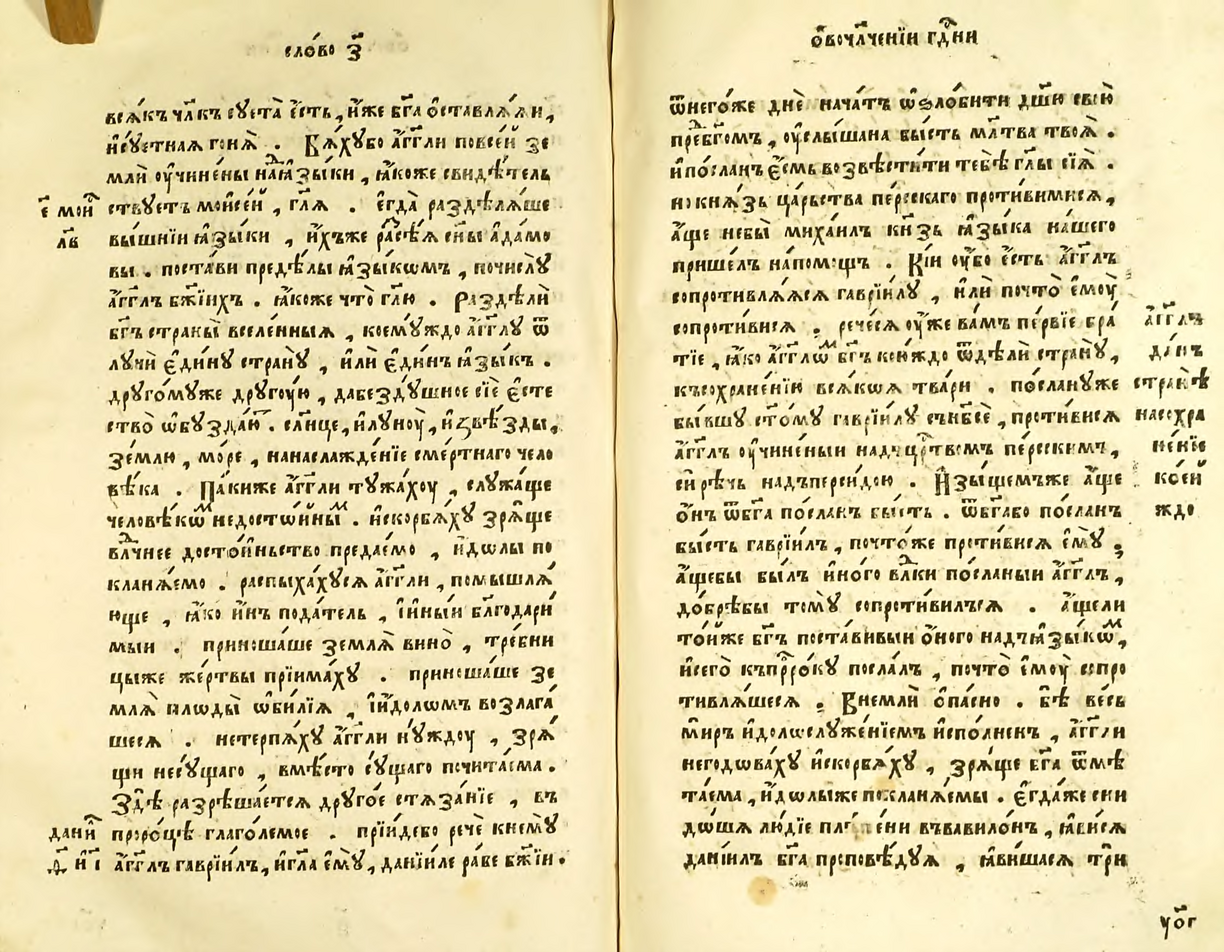 сло́во з҃
всѧ́къ чл҃къ суета̀ є҆́сть, и҆́же бг҃а ѡ҆ставлѧ́ѧи,
и҆суетнаѧ гонѧ̀ . Бѧ́хꙋбо а҆́гг҃ли повсе́й зе
млѝ оу҆чине́ны наꙗ҆зы́ки , ꙗ҆́коже свидѣ́тель
є҃ мои҆
ствуетъ мои҆се́й , гл҃ѧ . є҆гда̀ раздѣлѧ́ше
л҃в
вы́шнїи ꙗ҆зы́ки , и҆́хъже расѣ́ѧ сн҃ы а҆да́мо
вы . поста́ви предѣ́лы ꙗ҆зы́кѡмъ , почислꙋ̀
а҆́гг҃лъ бж҃їихъ . ꙗ҆́коже что̀ гл҃ю . раздѣлѝ
бг҃ъ страны̀ вселе́нныѧ , коемꙋ́ждо а҆́гг҃лꙋ ѿ
лꙋчѝ є҆ди́нꙋ странꙋ̀ , и҆лѝ є҆ди́нъ ꙗ҆зы́къ .
друго́муже другꙋ́ю , дабезд́ꙋшное сїѐ є҆сте
ство̀ ѡ҆бꙋзда́ю҆т . сл҃нце, и҆лꙋнꙋ̀, и҆ѕвѣ́зды,
зе́млю , мо́ре , нанаслажде́нїе сме́ртнаго чело
вѣ́ка . Па́киже а҆́гг҃ли тꙋжа́хꙋ , слꙋжа́ще
человѣ́кѡм недосто́йным . и҆скорбѧ́хꙋ зрѧ́ще
влⷣчнее досто́иньство предае́мо , и҆́дѡлы по
кланѧ́емо . распыха́хꙋсѧ а҆́гг҃ли , помышлѧ́
юще , ꙗ҆́ко и҆́нъ пода́тель , и҆и҆ны́и благодари́
мыи . приноша́ше землѧ̀ вино̀ , тре́бни
цыже же́ртвы прїима́хꙋ . приноша́ше зе
млѧ̀ плоды̀ ѡ҆би́лїѧ , і҆и҆́долѡмъ возлага́
шесѧ . нетерпѧ́хꙋ а҆́гг҃ли нꙋ́ждꙋ , зрѧ́
щи несꙋ́щаго , вмѣ́сто сꙋ́щаго почита́ема .
Здѣ̀ разрѣша́етсѧ друго́е стѧза́нїе , въ
дани҆
проро́цѣ глаго́лемое . прїи́дебо речѐ кнемꙋ̀
д҃ и҆ і҃
а҆́гг҃лъ гаврїи́лъ, и҆гл҃а є҆мꙋ̀, данїи́ле ра́бе бж҃їи .
ѡ҆вочл҃ченїи гд҃ни
ѿнего́же дн҃ѐ нача́тъ ѡ҆ѕло́бити дш҃ꙋ свою̀
пре́дбг҃омъ , оу҆слы́шана бы́сть мл҃тва твоѧ̀ .
и҆по́сланъ є҆́смь возвѣсти́ти тебѣ̀ гл҃ы сїѧ̀ .
но кнѧ́зь ца́рьства пе́рсскаго проти́вимисѧ,
а҆́ще небы̀ михаи́лъ кнѧ́зь ꙗ҆зы́ка на́шего
пришéлъ напо́мощь . Кі́и оу҆́бо є҆́сть а҆́гг҃лъ
сопротивлѧ́ѧсѧ гаврїи́лꙋ , и҆лѝ почто̀ є҆мꙋ̀
сопроти́висѧ . рече́сѧ оу҆́же ва́мъ пе́рвїе бра́
а҆́гг҃лъ
тїе , ꙗ҆́ко а҆́гг҃лѡм бг҃ъ кои҆́ждо ѿдѣлѝ странꙋ̀,
да́нъ
късохране́нїю всѧ́кѡѧ тва́ри . по́сланꙋже
странѣ̀
бы́вшꙋ ст҃о́мꙋ гаврїи́лꙋ сън҃бсѐ , проти́висѧ
насохра
а҆́гг҃лъ оу҆чине́ныи надъцр҃твомъ пе́рсскимъ,
не́нїе
си́рѣчь надъперси́дою . И҆́зы́щемъже а҆́ще
ко́ей
ѻ҆́нъ ѿбг҃а по́сланъ бы́сть . ѿбг҃або по́сланъ
ждо
бы́сть гаврїи́лъ , почто́же проти́висѧ є҆мꙋ̀ ;
а҆́щебы бы́лъ и҆но́го влⷣки по́сланыи а҆́гг҃лъ ,
до́брѣбы томꙋ̀ сопроти́вилъсѧ . а҆́щели
то́йже бг҃ъ поста́вивыи ѻ҆́ного надъꙗ҆зы́кѡм,
и҆сего̀ къпрⷪ҇ро́кꙋ посла́лъ , почто̀ є҆мꙋ̀ сопро
тивлѧ́шесѧ . Внемлѝ ѻ҆па́сно . бѣ̀ ве́сь
ми́ръ и҆долѡслꙋже́нїемъ и҆спо́лненъ , а҆́гг҃ли
негодѡва́хꙋ и҆скорбѧ́хꙋ , зрѧ́ще бг҃а ѿмѣ
та́ема , и҆́дѡлыже покланѧ́емы . є҆гда́же сни
дѡ́шѧ лю́дїе плѣне́ни въвавилѡ́нъ , ꙗ҆ви́сѧ
данїи́лъ бг҃а проповѣ́дꙋѧ , ꙗ҆ви́шасѧ трѝ
уо҃г